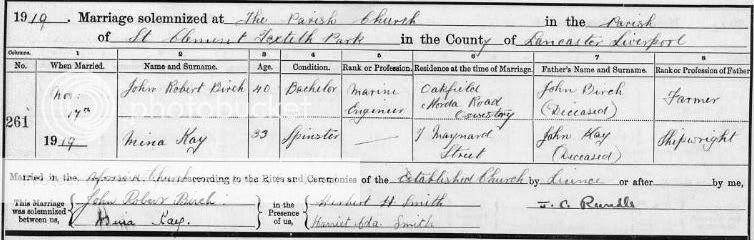 1919. Marriage solemnized at The Parish Church in the Parish
of St Clement Toxteth Park in the County of Lancaster Liverpool
Columns. 1 2 3 4 5 6 7 8
No. When Married. Name and Surname. Age. Condition. Rank or Profession. Residence at the time of Marriage. Father's Name and Surname. Rank or Profession of Father
261 Nov. 17th 1919 John Robert Birch 40 Bachelor Marine Engineer Oakfield Morda Road Oswestry John Birch (Deceased) Farmer
Mina Kay 33 Spinster — 7 Maynard Street John Kay (Deceased) Shipwright
Married in the aforesaid Church according to the Rites and Ceremonies of the Established Church by Licence or after by me,
This Marriage was solemnized between us, John Robert Birch Mina Kay. in the Presence of us, Herbert H. Smith Harriet Ada Smith
photobucket